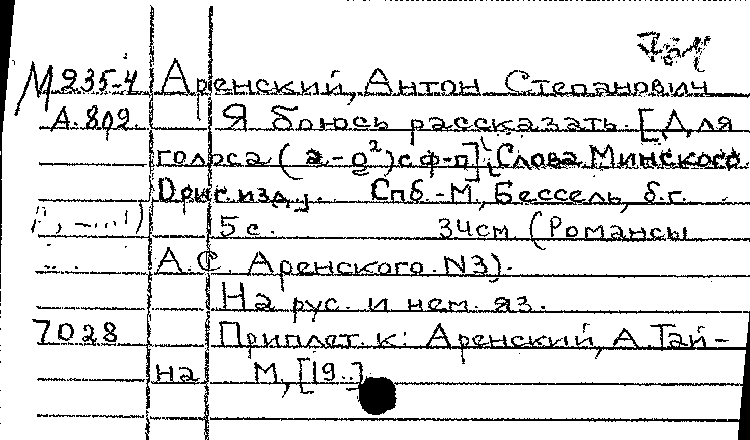 М 235-4 Аренский, Антон Степанович
А.802. Я боюсь рассказать. [Для
голоса (a-g²) с ф-п]. Слова Минского.
Ориг. изд. Спб.-М, Бессель, б.г.
5 с. 34см (Романсы
А.С. Аренского. N3).
На рус. и нем. яз.
7028 Приплет. к: Аренский, А. Тай-
на М, [19..]